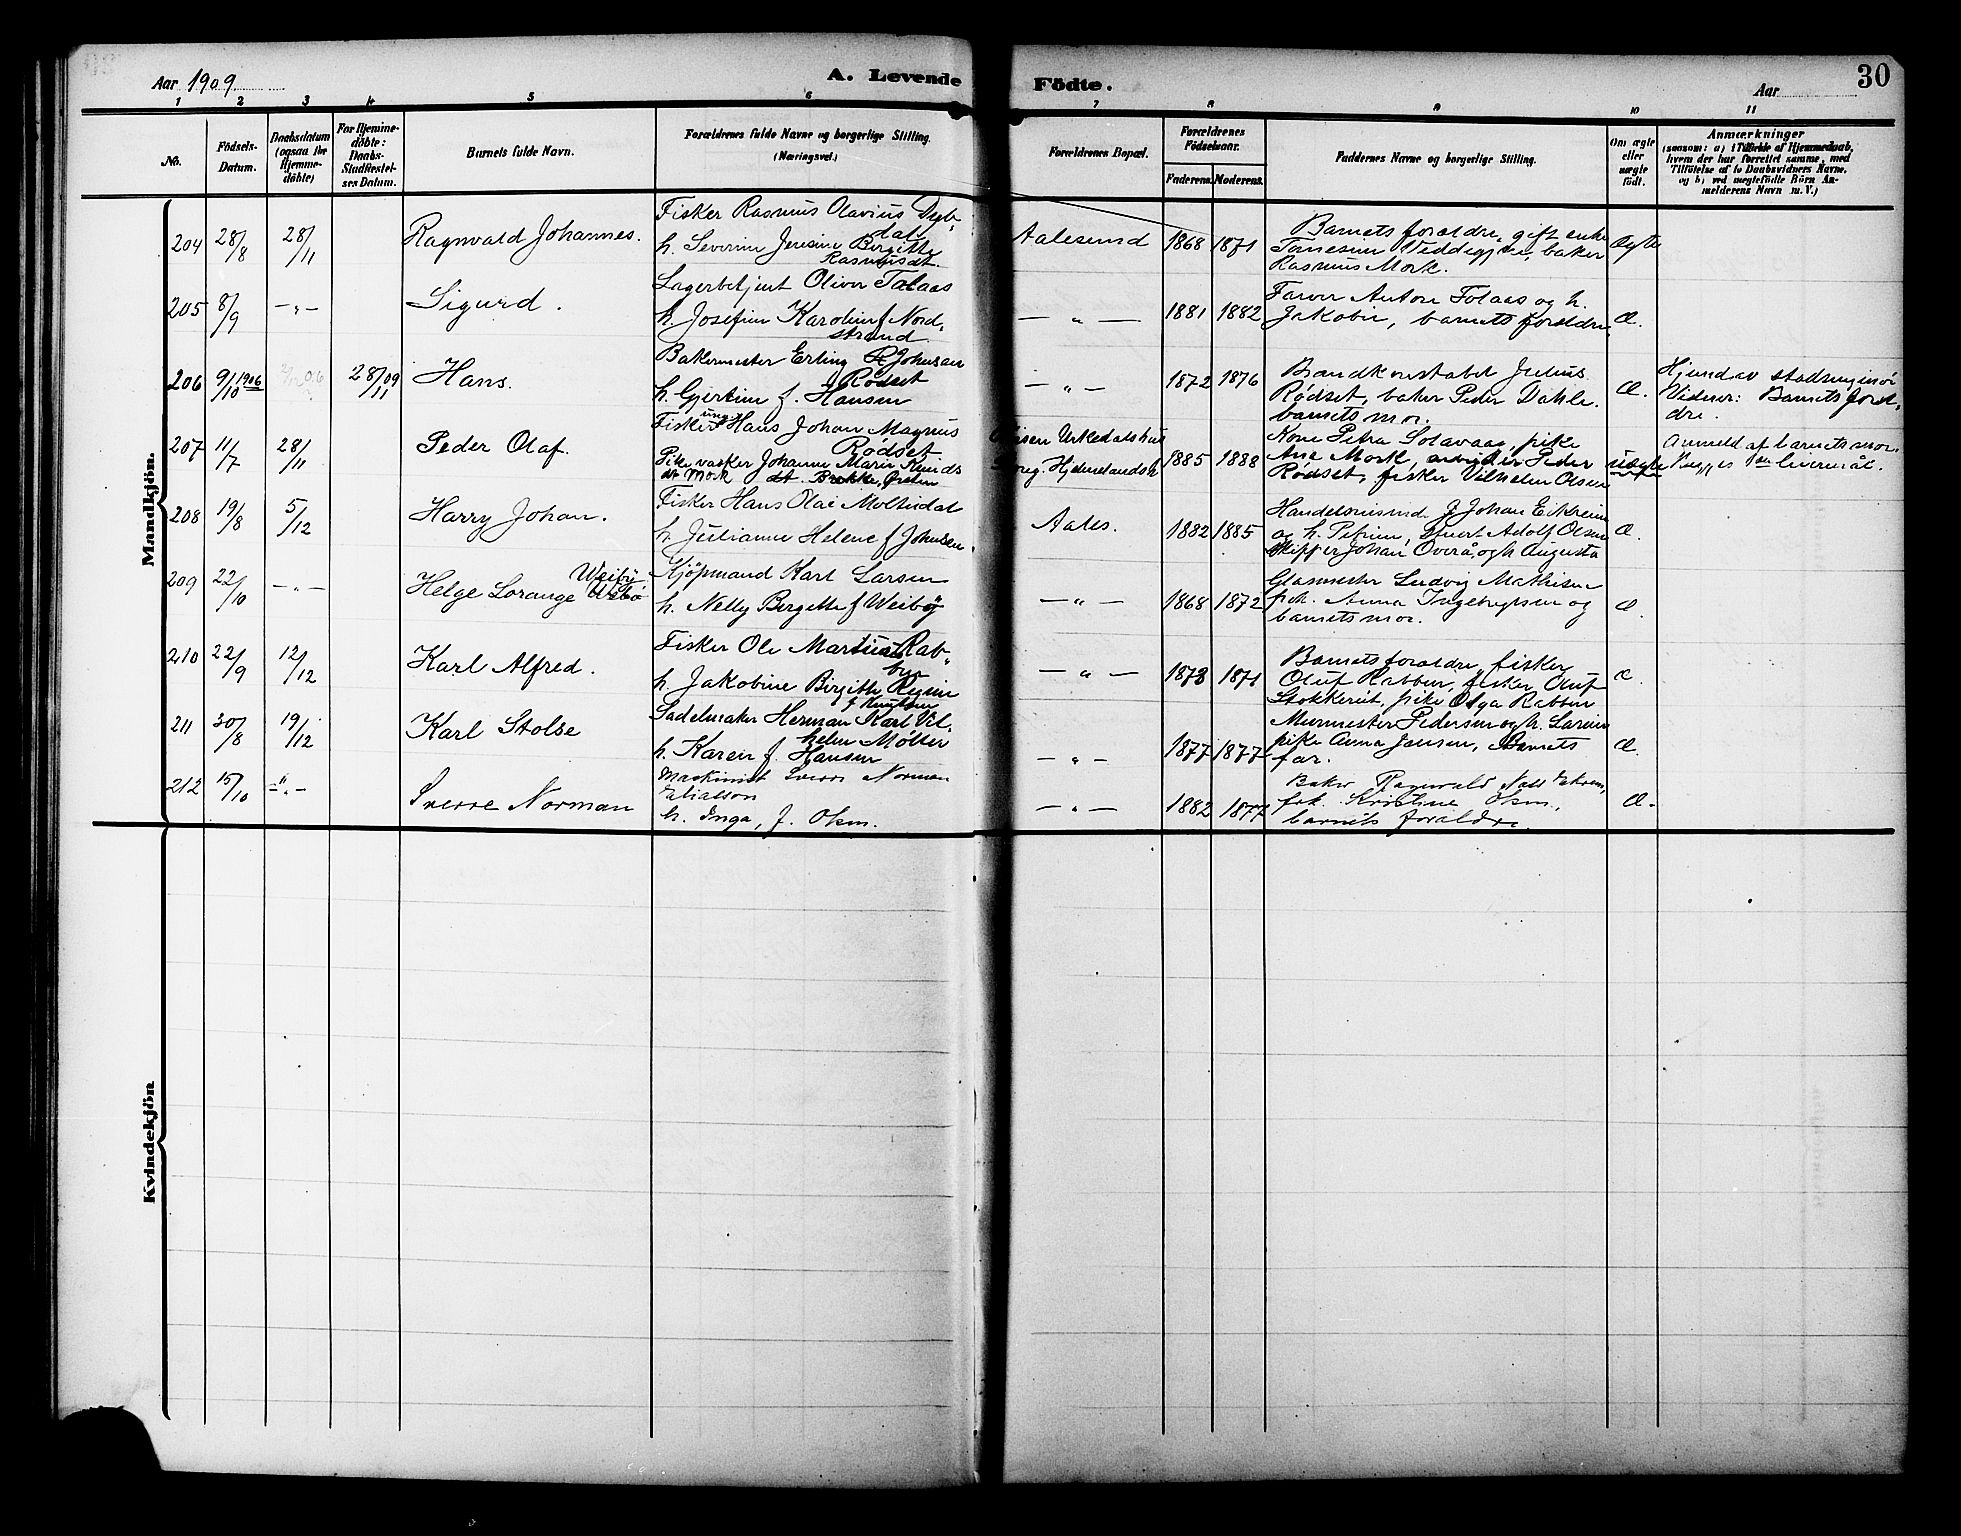 Aar 1909
A. Levende
Födte.
Aar
30
1 2 3 4 5 6 7 8 9 10 11
No.
Födsels-
Datum.
Daabsdatum
(ogsaa for
Hjemme-
döbte)
For Hjemme-
döbte:
Daabs-
Stadfæstel-
ses Datum.
Barnets fulde Navn.
Forældrenes fulde Navne og borgerlige Stilling.
(Næringsvei.)
Forældrenes Bopæl.
Forældrenes
Födselsaar.
Faderens. Moderens.
Faddernes Navne og borgerlige Stilling.
Om ægte
eller
uægte
födt.
Anmærkninger
(saasom: a) i Tilfælde af Hjemmedaab,
hvem der har forrettet samme, med
Tilföielse af to Daabsvidners Navne,
og b) ved uægtefödte Börn An-
melderens Navn m. V.)
Mandkjön.
204 28/8 28/11 Ragnvald Johannes.
Fisker Rasmus Olavius Dyb-
dal
h. Severine Jensine Birgitte
Rasmusdt.
Aalesund 1868 1871
Barnets forældre, gift enke
baker
Rasmus Mork.
Ægte
205 8/9 -"- Sigurd.
Lagerbetjent Oliver Tolaas
h. Josefine Karoline f Nord-
strand.
- " - 1881 1882
Farver Anton Tolaas og h.
Jakobie, barnets forældre.
Æ.
206 9/10 1906 28/11 09 Hans.
Bakermester Erling Johnsen
Rødset
h. Gjertine f. Hansen
- " - 1872 1876
Brandkonstabel Julius
Rødset, baker Peder Dahle.
barnets mor.
Æ.
Vidner: Barnets foræl-
dre.
207 11/7 28/11 Peder Olaf.
Fisker ungk. Hans Johan Magnus
Rødset
Pike, vasker Johanne Marie Knuds
dt. Mork
1885 1888
Kone Petra Solavaag, pike
Ane Mork, arbeider Peder
Rødset, fisker Vilhelm Olsen
uægte
Anmeld af barnets mor.
Begges 1ste leiermål.
208 19/8 5/12 Harry Johan.
Fisker Hans Olai Moltudal
h. Julianne Helene f Johnsen.
Aales. 1882 1885
Johan Eikrem
og h. Petrine, Adolf Olsen
skipper Johan Overå, og h Augusta
Æ.
209 22/10 -"- Helge Lorange Weiby
Kjöpmand Karl Larsen
h. Nelly Bergitte f Weiby
- " - 1868 1872
Glasmester Ludvig Mathisen
frk. Anna Ingebrigtsen og
barnets mor.
Æ
210 22/9 12/12 Karl Alfred.
Fisker Ole Martinus Rab-
ben
h. Jakobine Birgitte Regine
f Knutsen
- " - 1873 1871
Barnets forældre, fisker
Oluf Rabben, fisker Oluf
Stokkereit, pike Olga Rabben
Æ.
211 30/8 19/12 Karl Stolse
Sadelmaker Herman Karl Vil-
helm Mölter
h. Karen f. Hansen
- " - 1877 1877
Murmester Pedersen og h. Larine
pike Anna Jansen, Barnets
far.
Æ.
212 15/10 -"- Sverre Norman
Maskinist Sverre Norman
Eliassen
h. Inga, f. Olsen.
- " - 1882 1877
Baker Ragnvald
frk. Kristine Olsen,
barnets forældre.
Æ.
Kvindekjön